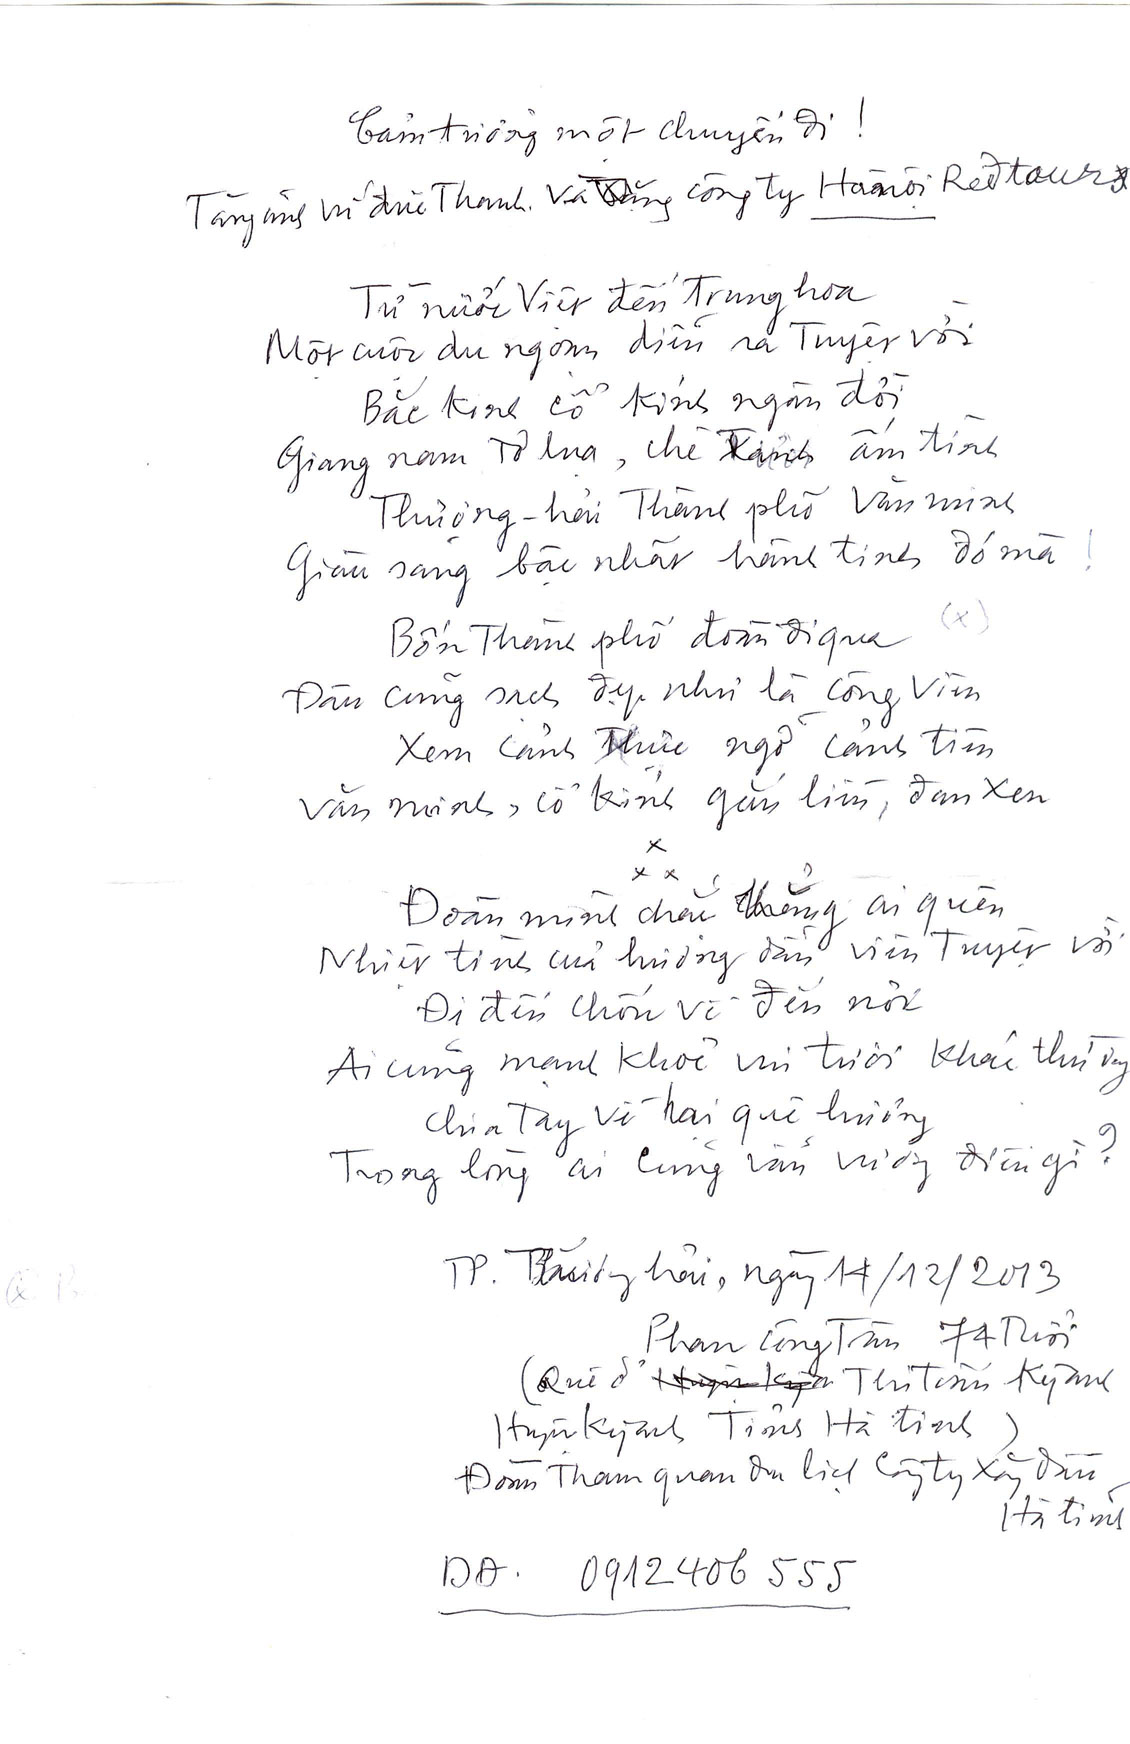 Cảm tưởng một chuyến đi!
Tặng anh Vũ đức Thanh. Và công ty Hà nội Redtours
Từ nước Việt đến Trung hoa
Một cuộc du ngoạn diễn ra Tuyệt vời
Bắc Kinh cổ kính ngàn đời
Giang nam Tơ lụa, chè Xanh ấm tình
Thượng-hải Thành phố Văn minh
Giàu sang bậc nhất hành tinh đó mà!
Bốn Thành phố đoàn đi qua (x)
Đâu cũng sạch đẹp như là công Viên
Xem cảnh Thực ngỡ cảnh tiên
Văn minh, cổ kính gắn liền, đan xen
x
x x
Đoàn mình chắc chẳng ai quên
Nhiệt tình của hướng dẫn viên Tuyệt vời
Đi đến chốn về đến nơi
Ai cũng mạnh khoẻ vui tươi khác thường
Chia Tay về lại quê hương
Trong lòng ai cũng vấn vương điều gì?
TP. Thượng hải, ngày 14/12/2013
Phan Công Trân 74 Tuổi
(Quê ở Thị trấn Kỳ anh
Huyện Kỳ anh Tỉnh Hà tĩnh)
Đoàn Tham quan du lịch Công ty Xăng dầu
Hà tĩnh
DĐ. 0912406 555